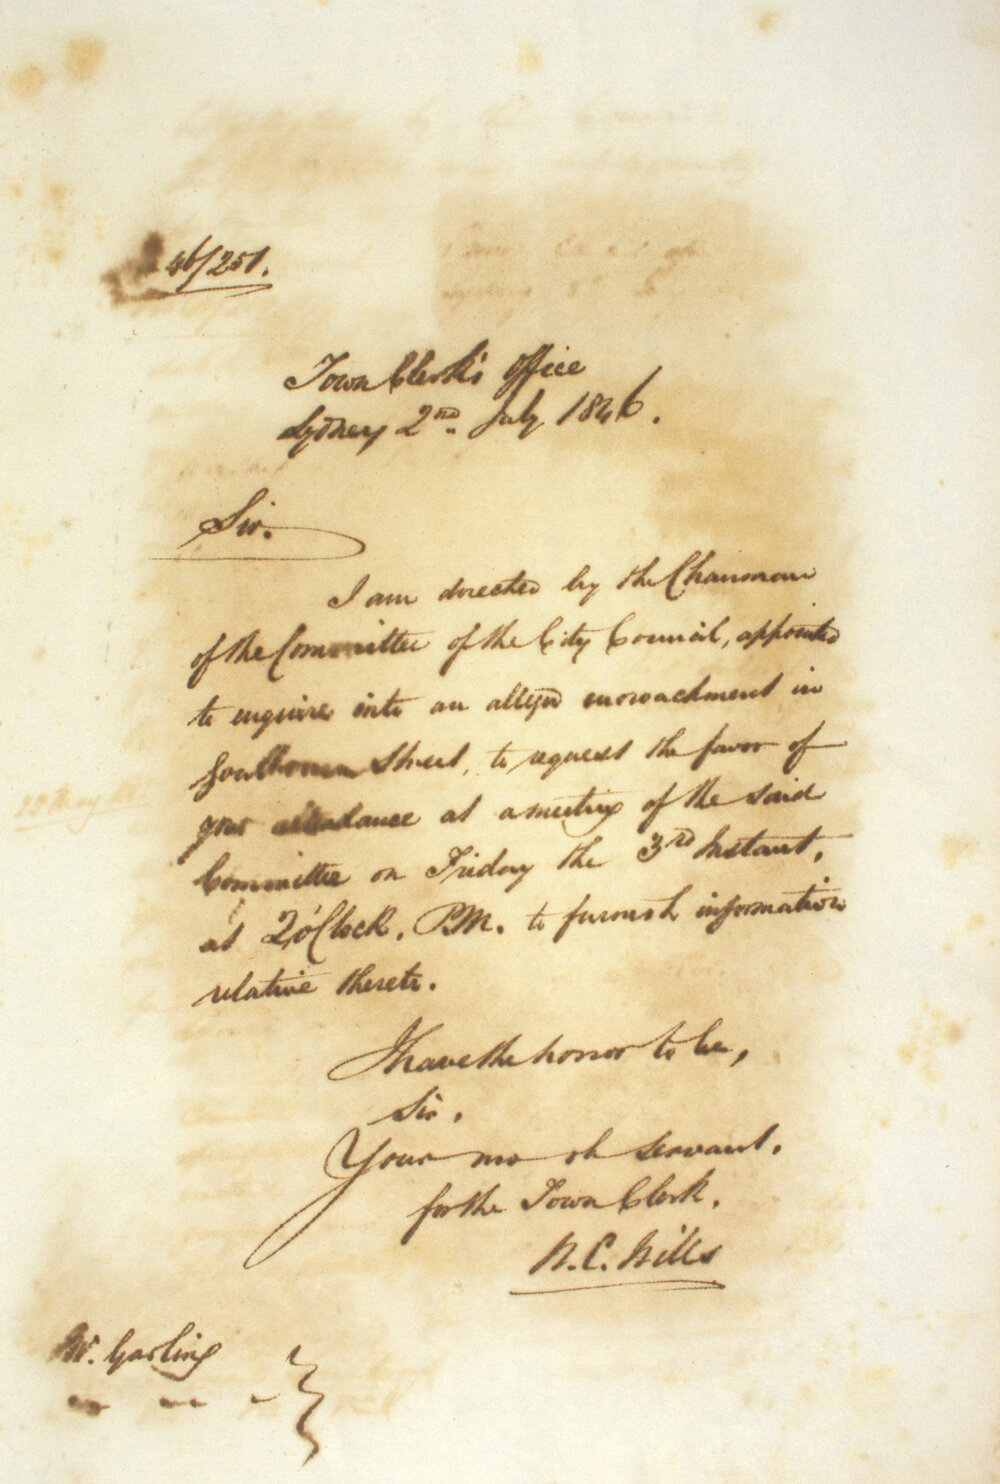 46/251.
Town Clerk's Office
Sydney 2nd. July 1846.
Sir.
I am directed by the Chairman
of the Committee of the City Council, appointed
to enquire into an alleged encroachment in
Goulbourn Street, to request the favor of
your attendance at a meeting of the said
Committee on Friday the 3rd Instant,
at 2 o'Clock. P.M. to furnish information
relative thereto.
I have the honor to be,
Sir.
Your mo ob servant.
for the Town Clerk.
Mr. Garling